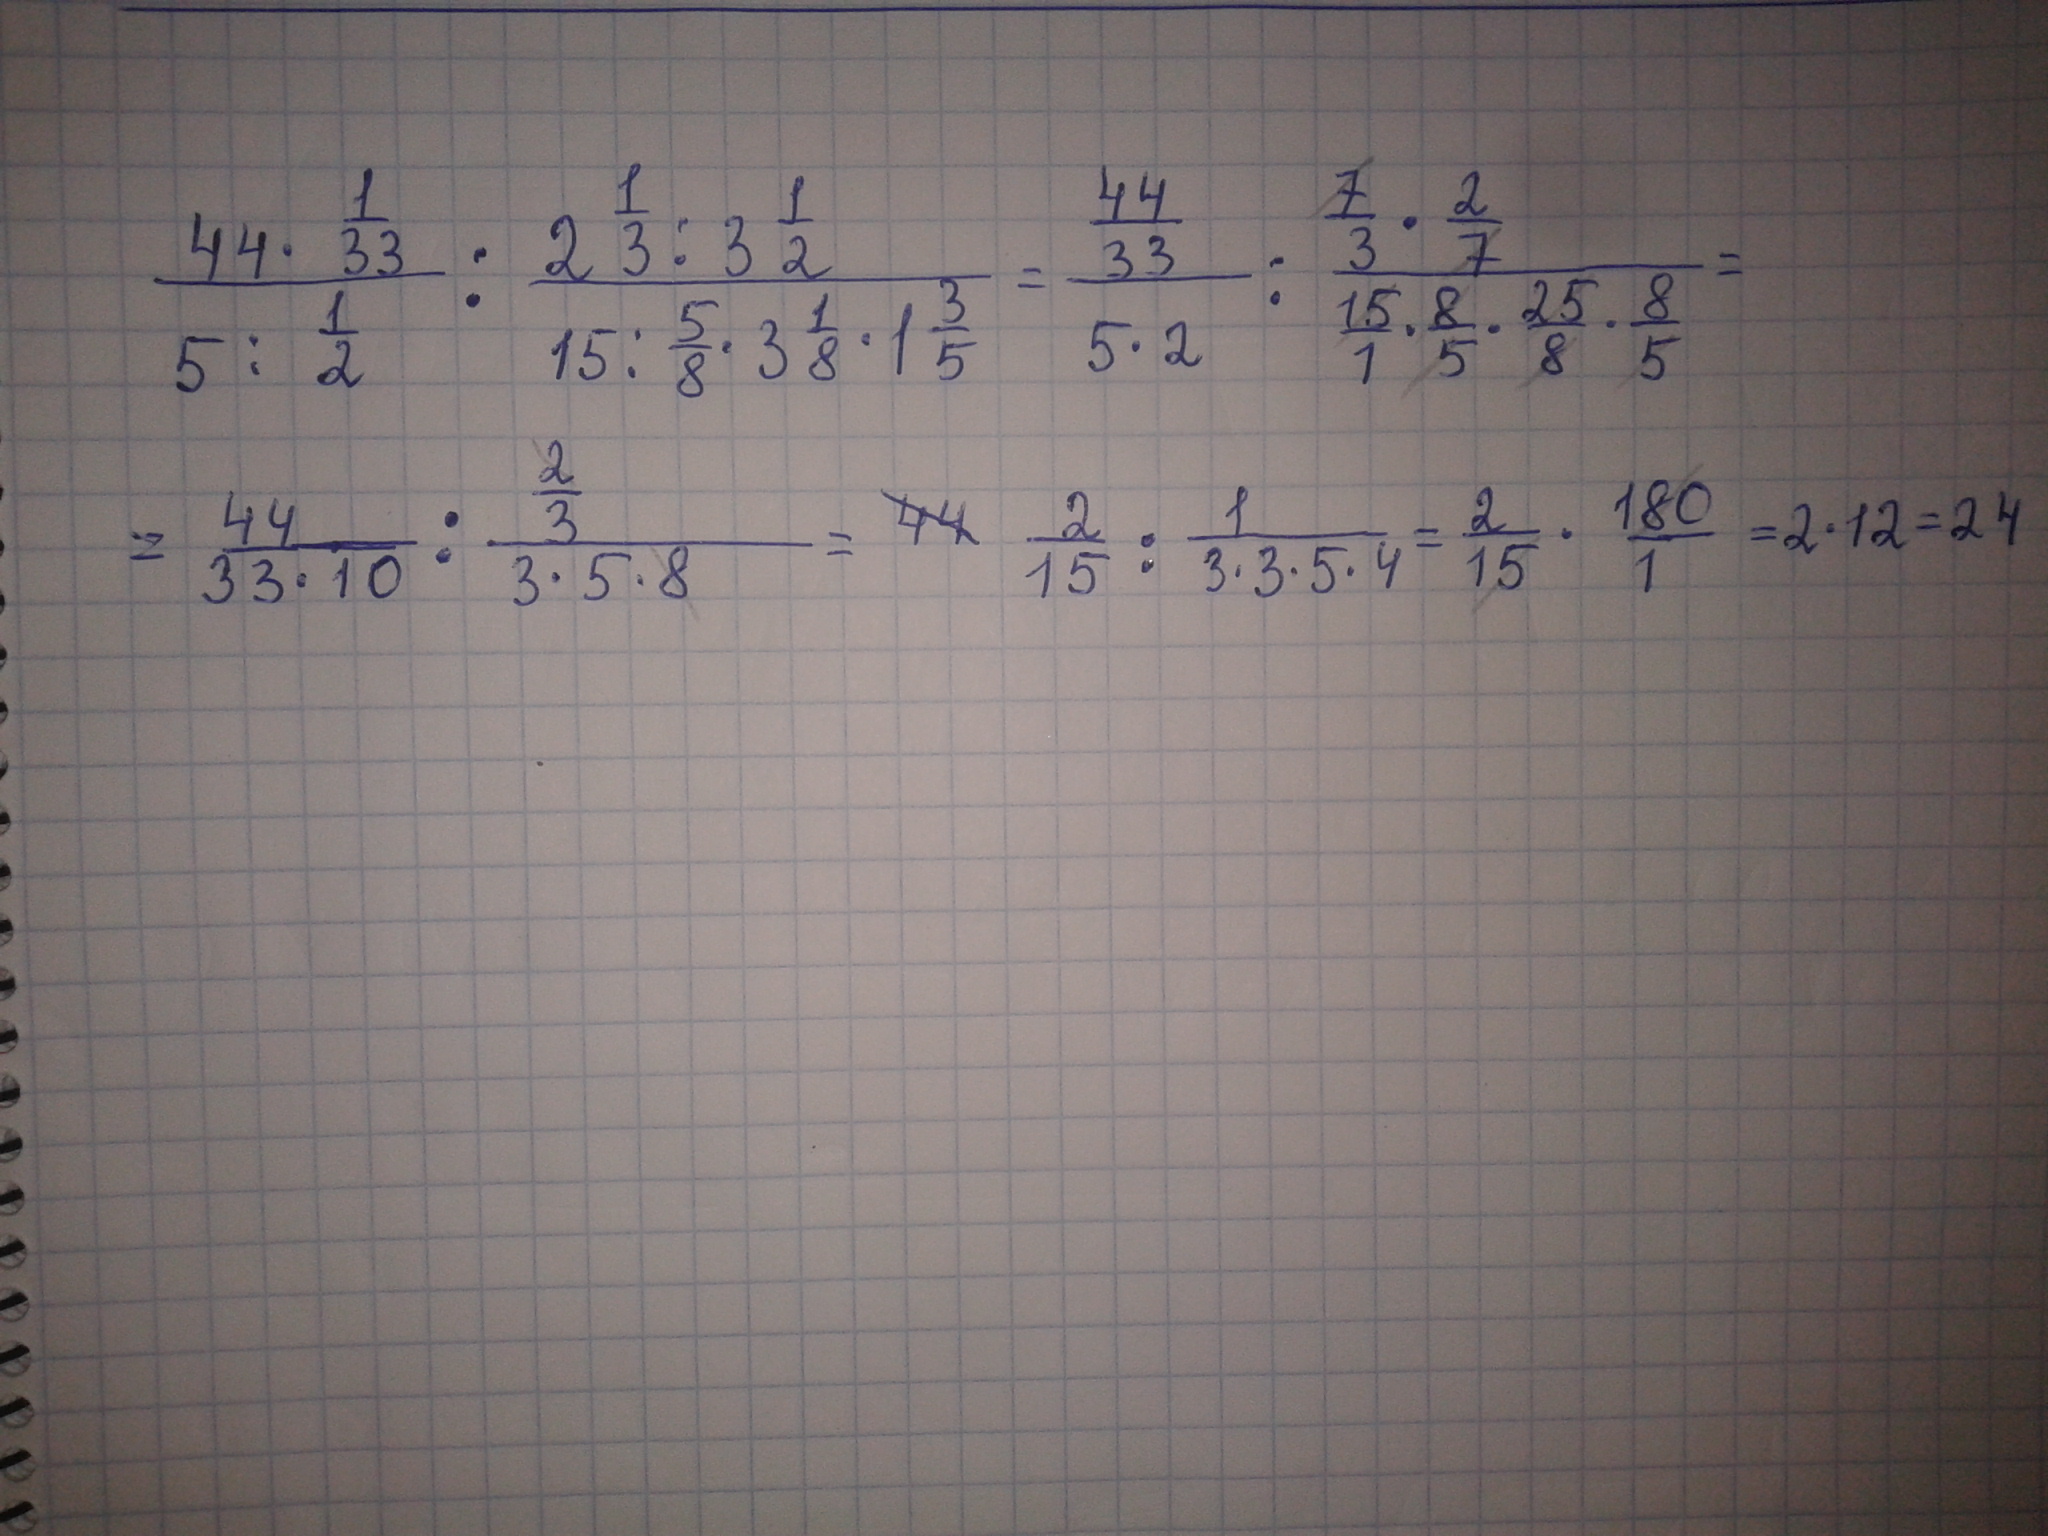 (44 · 1/33)/(5 : 1/2) : (2 1/3 : 3 1/2)/(15 : 5/8 · 3 1/8 · 1 3/5) = (44/33)/(5 · 2) : (7/3 · 2/7)/(15/1 · 8/5 · 25/8 · 8/5) =
= 44/(33 · 10) : (2/3)/(3 · 5 · 8) = 44 2/15 : 1/(3 · 3 · 5 · 4) = 2/15 · 180/1 = 2 · 12 = 24